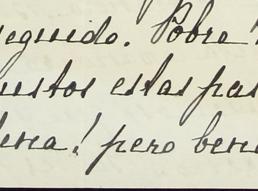 seguido. Pobre
ustos estas pas
lena! pero bene